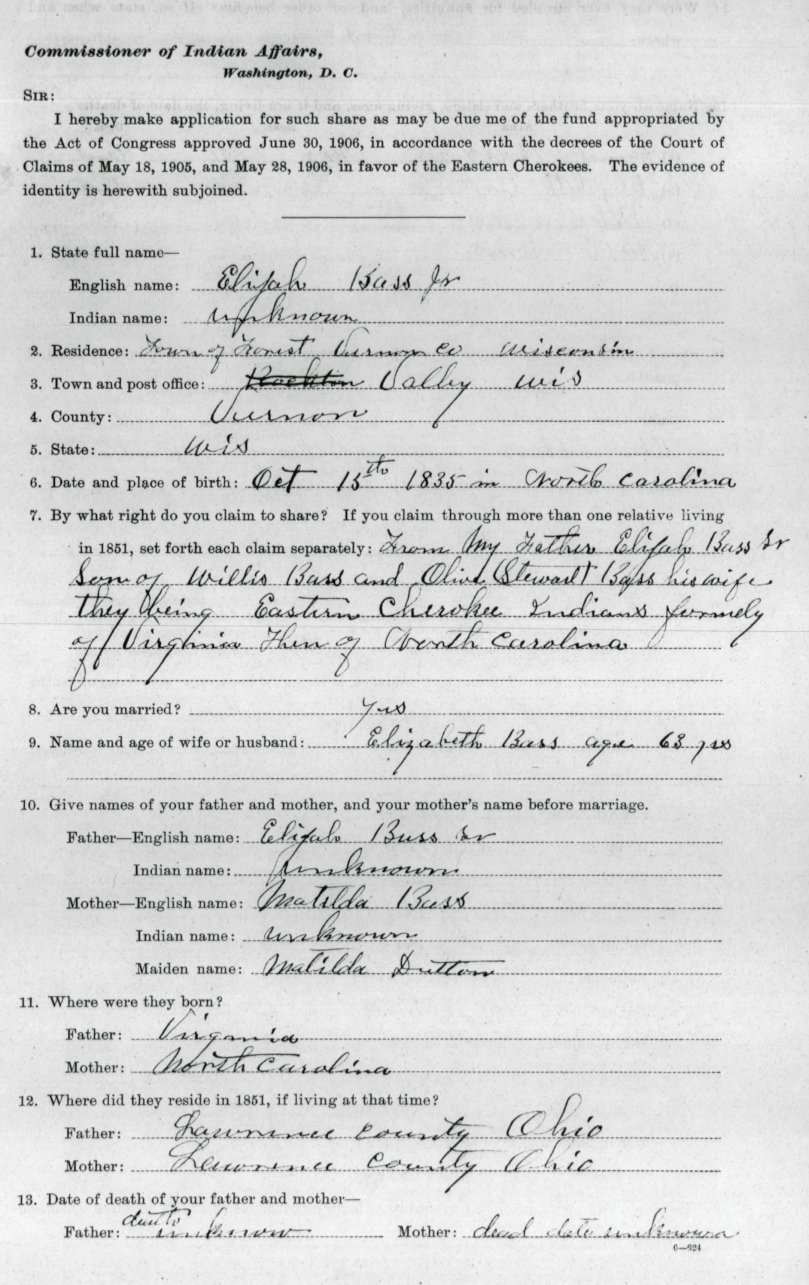 Commissioner of Indian Affairs,
Washington, D. C.
SIR:
I hereby make application for such share as may be due me of the fund appropriated by
the Act of Congress approved June 30, 1906, in accordance with the decrees of the Court of
Claims of May 18, 1905, and May 28, 1906, in favor of the Eastern Cherokees. The evidence of
identity is herewith subjoined.
1. State full name—
English name: Elijah Bass Jr
Indian name: unknown
2. Residence: Town of Forest Vernon Co Wisconsin
3. Town and post office: Rockton Valley Wis
4. County: Vernon
5. State: Wis
6. Date and place of birth: Oct 15th 1835 in North Carolina
7. By what right do you claim to share? If you claim through more than one relative living
in 1851, set forth each claim separately: From My Father Elijah Bass Sr
Son of Willis Bass and Olive (Stewart) Bass his wife
they being Eastern Cherokee Indians formely
of Virginia Then of North Carolina
8. Are you married? yes
9. Name and age of wife or husband: Elizabeth Bass age 63 yrs
10. Give names of your father and mother, and your mother's name before marriage.
Father—English name: Elijah Bass Sr
Indian name: unknown
Mother—English name: Matilda Bass
Indian name: unknown
Maiden name: Matilda Dutton
11. Where were they born?
Father: Virginia
Mother: North Carolina
12. Where did they reside in 1851, if living at that time?
Father: Lawrence County Ohio
Mother: Lawrence County Ohio
13. Date of death of your father and mother—
Father: unknow Mother: dead date unknown
6—924